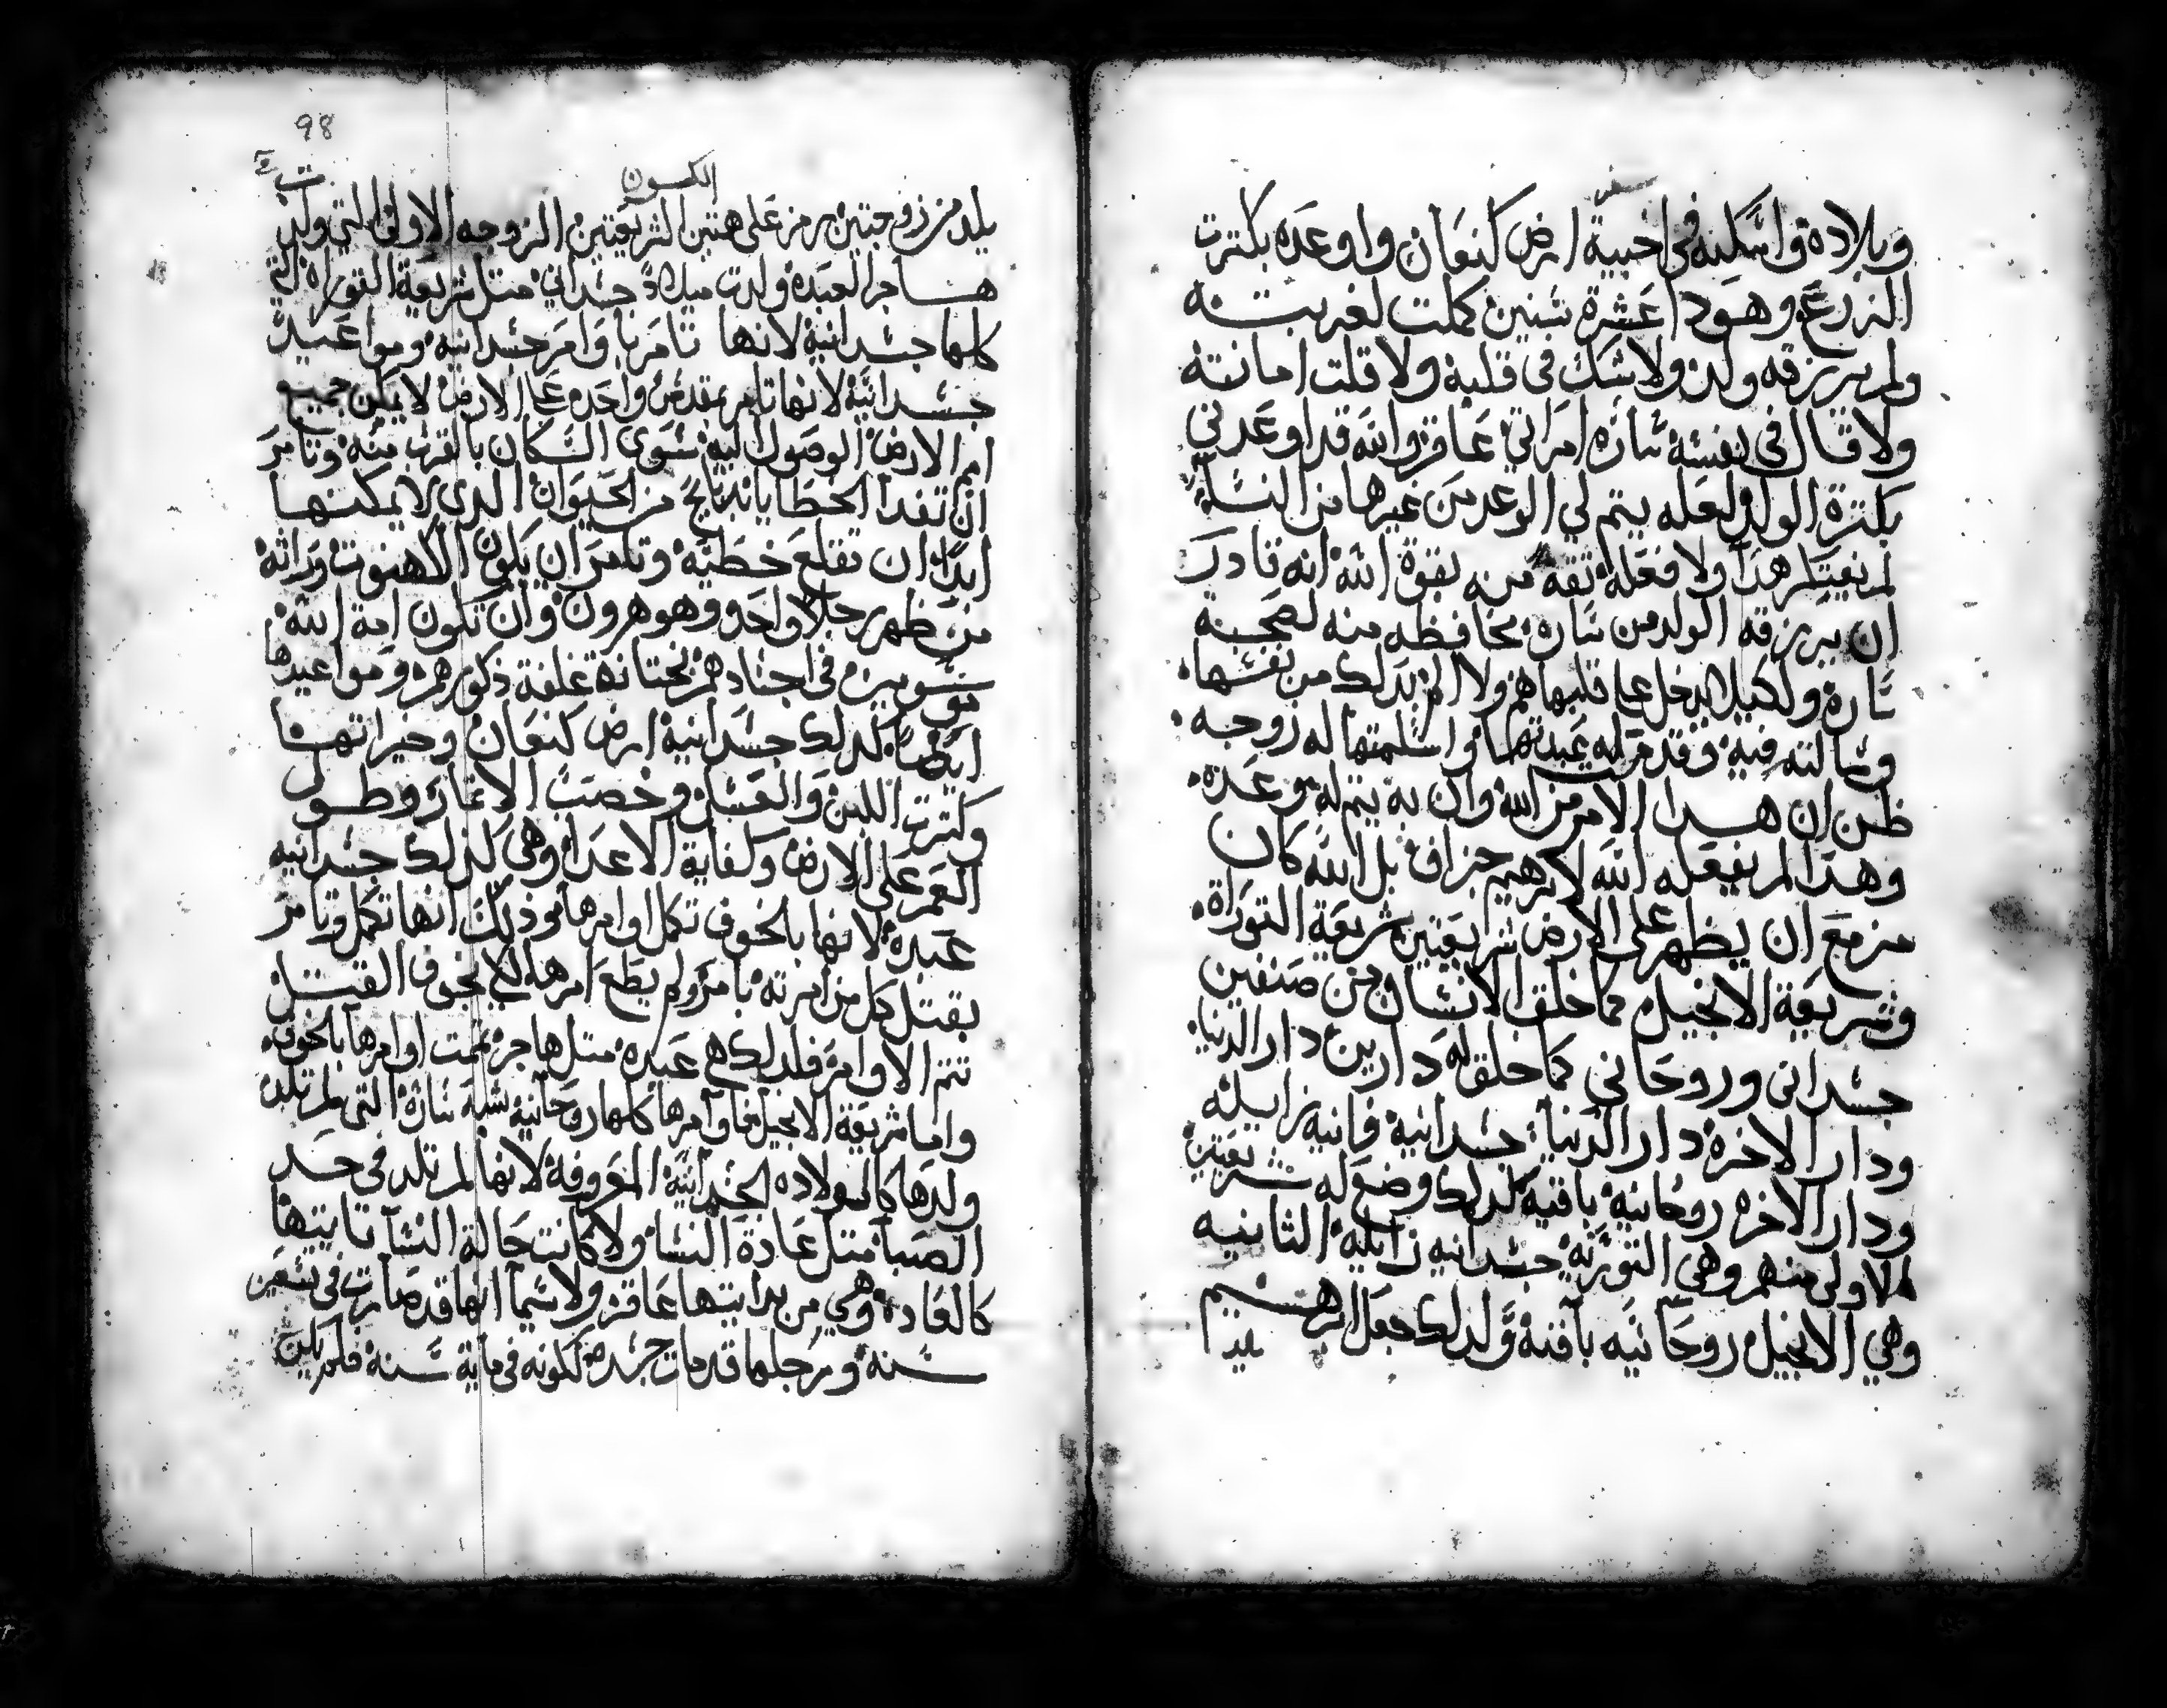 سفر
وبلاده واسكنه في اخبية ارض كنعان واوعده بكترت
الزرع وهودا عشرة سنين كملت لغربته
ولم يرزقه ولد ولا شك في قلبه ولا قلت امانته
ولا قال في نفسه ساره امراتي عاقر والله قد اوعدني
بكترة الولد ولعله يتم لي الوعد من غيرها من النساء
لم يفتكر هدا ولا فعله تقه منه بقوة الله انه قادر
ان يرزقه الولد من ساره محافظه منه لصحبة
ساره ولكيلا يدخل على قلبها هم ولا الم بدلك من نفسها
وسالته فيه وقدمة له عبدتها واسلمتها له زوجه
ظن ان هدا الامر من الله وان به يتم له موعده
وهدا لم يفعله الله لابرهيم جزاف بل الله كان
مزمع ان يظهر على الارض شريعتين شريعة التوراة
وشريعة الانجيل كما خلق الانسان من صنفين
جسداني وروحاني كما خلق له دارين دار الدنيا
ودار الاخره دار الدنيا جسدانيه فانيه زايله
ودار الاخره روحانيه باقيه كدلك وضع له شريعتين
الاولى منهم وهي التوريه جسدانيه زايله الثانيه
وهي الانجيل روحانيه باقيه ولدلك جعل ابرهيم
يلد
98
الكون
يلد من زوجتين يرمز على هتين الشريعتين الزوجه الاولى التي ولدت
هاجر العبده ولدت ميلاد جسداني متل شريعة التوراه التي
كلها جسدانية لانها تامر باوامر جسدانيه ومواعيد
جسدانية لانها تامر بمقدس واحد على الارض لا يمكن جميع
امم الارض الوصول اليه سوى السكان بالقرب منه وتامر
ان تفدا الخطايا بدبايح من الحيوان الدي لا يمكنها
ابدا ان تقلع خطيه وتامر ان يكون الكاهنوت وراته
من ظهر رجلا واحد وهو هرون وان تكون امة الله
موسومين في اجسادهم بختانة غلفة ذكورهم ومواعيدها
ايضا كدلك جسدانية ارض كنعان وخيراتها
وكترت اللبن والعسل وخصب الاتمار وطول
العمر على الارض وكفاية الاعدا وهي كدلك جسدانيه
عبده لانها بالخوف تكمل اوامرها وذلك انها تكمل وتامر
بقتل كل من امرته بامر ولم يطع امرها لكي بخوف القتل
تتم الاوامر فلدلك هي عبده متل هاجر تممت اوامرها بالخوف
واما شريعة الانجيل فاوامرها كلها روحانيه شبه ساره التي لم تلد
ولدها كالولاده الجسدانية المعروفة لانها لم تلد في حد
الصبا متل عادة النسا ولا كانت حالة النسا تابتيها
كالعاده وهي من بدايتها عاقر ولا سيما انها قد صارت في تسعين
سنه ورجلها قد مات جسده لكونه في ماية سنه فلم يكن